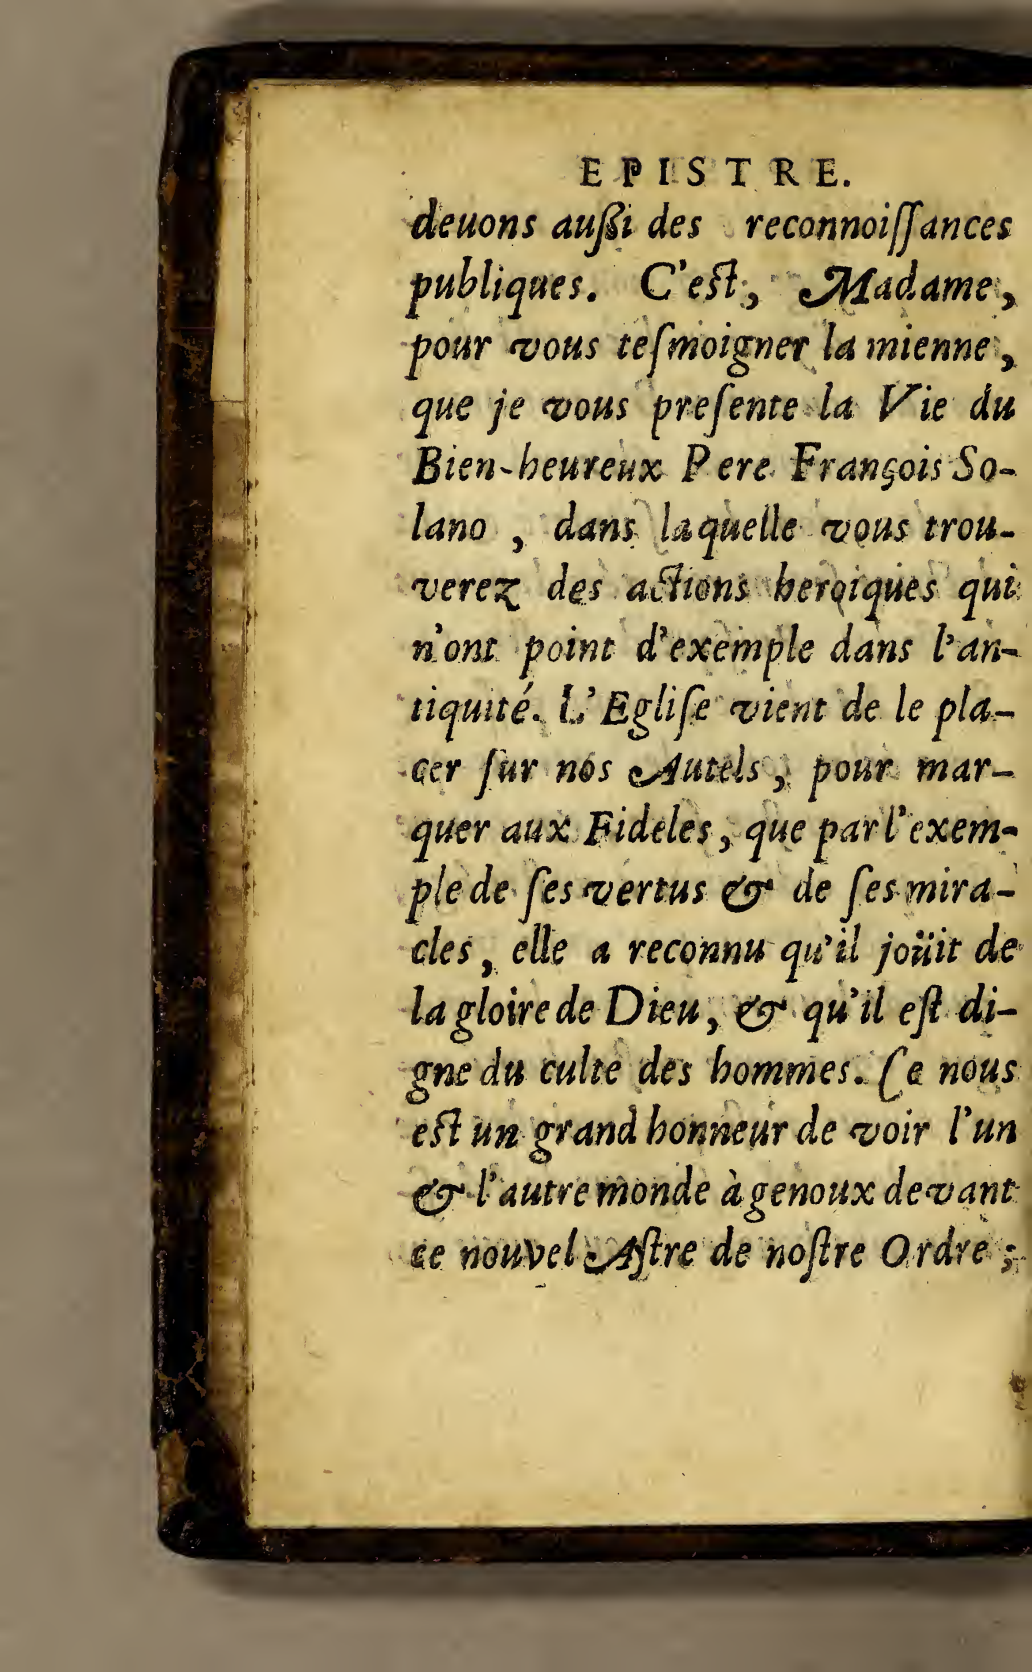 EPISTRE.
deuons außi des reconnoiſſances
publiques. C'eſt, Madame,
pour vous teſmoigner la mienne,
que je vous preſente la Vie du
Bien-heureux Pere François So-
lano, dans laquelle vous trou-
verez des actions heroiques qui
n'ont point d'exemple dans l'an-
tiquité. L'Egliſe vient de le pla-
cer ſur nos Autels, pour mar-
quer aux Fideles, que par l'exem-
ple de ſes vertus & de ſes mira-
cles, elle a reconnu qu'il joüit de
la gloire de Dieu, & qu'il eſt di-
gne du culte des hommes. Ce nous
eſt un grand honneur de voir l'un
& l'autre monde à genoux devant
ce nouvel Aſtre de noſtre Ordre;